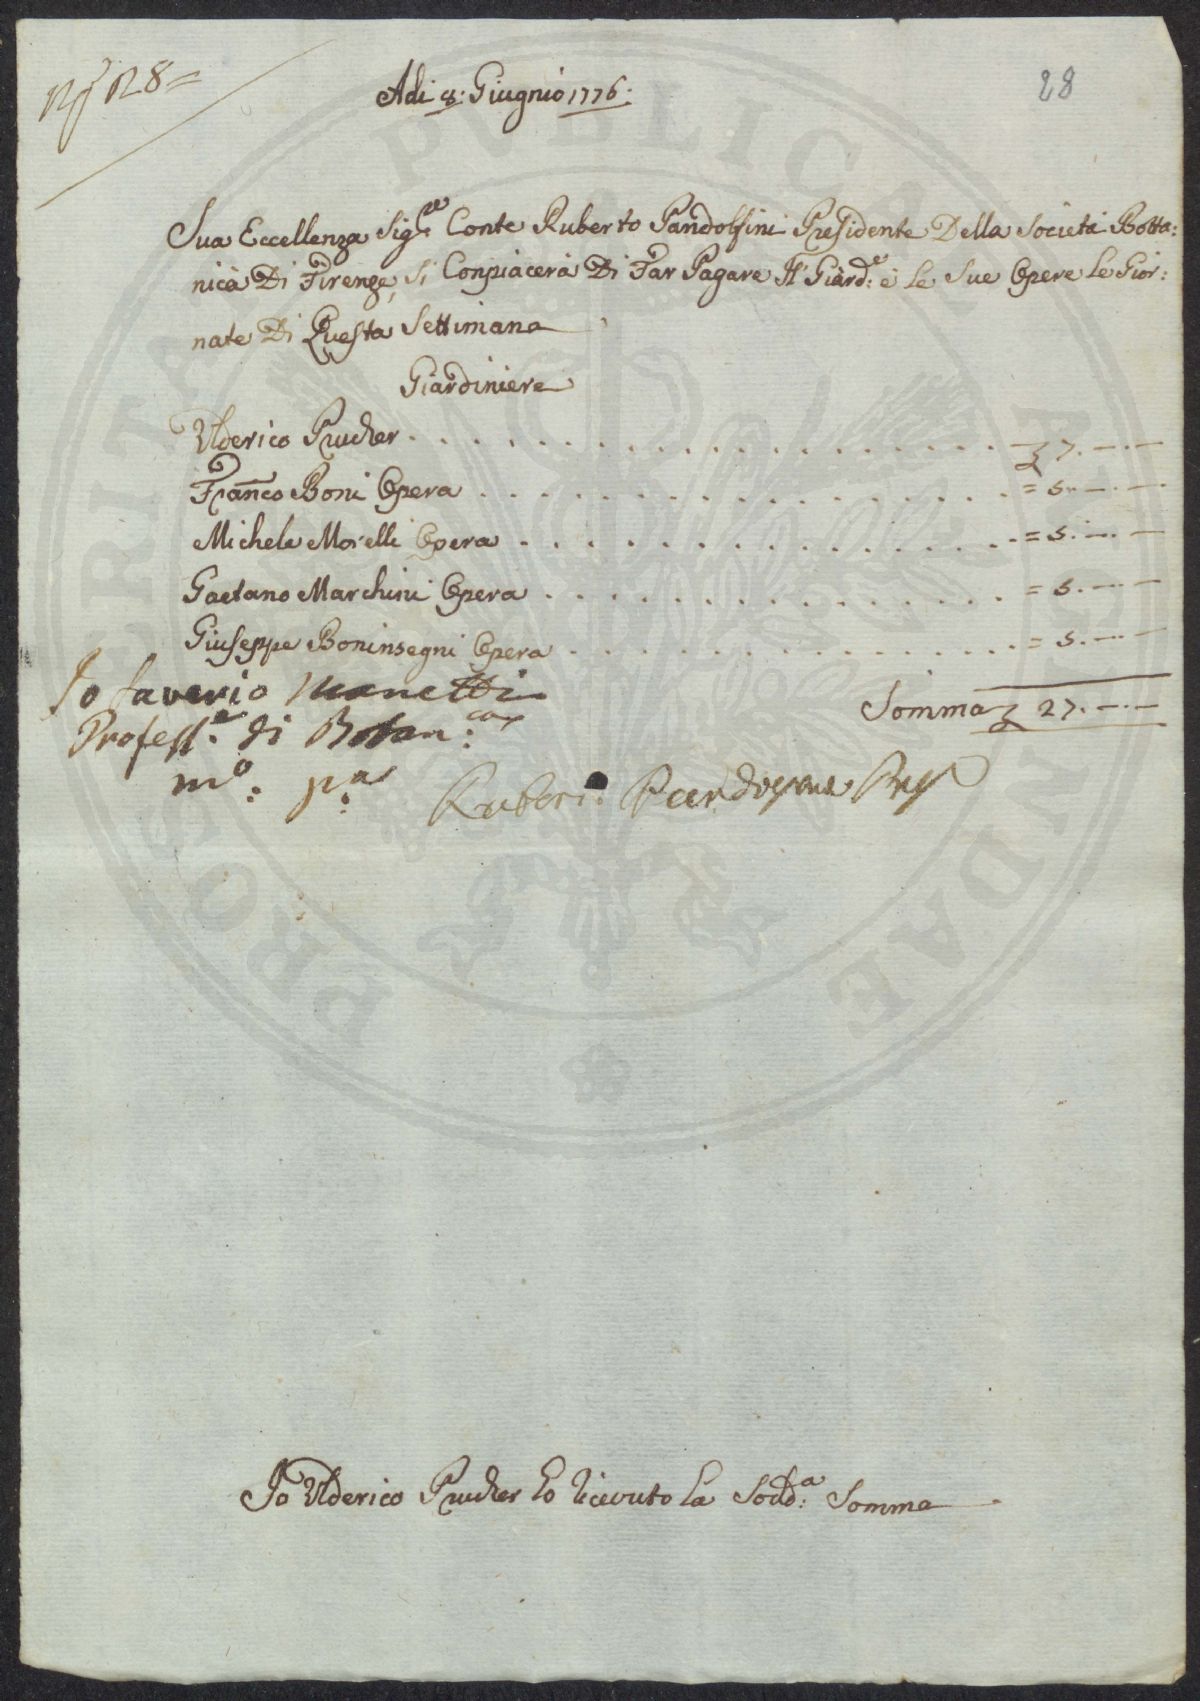 N° 28=
Adi 8: Giugnio 1776:
28
Sua Eccellenza Sig:re Conte Ruberto Pandolfini Presidente Della Societá Botta:
nica Di Firenze, Si Conpiacerá Di Far Pagare Il Giard:e é le Sue Opere Le Gior:
nate Di Questa Settimana
Giardiniere
Ulderico Prucher . . . . . . . . . . . . . . . . 7. — . —
Franco Boni Opera . . . . . . . . . . . . . . . = 5. — . —
Michele Morelli Opera . . . . . . . . . . . . . . = 5. — . —
Gaetano Marchini Opera . . . . . . . . . . . . . = 5. — . —
Giuseppe Boninsegni Opera . . . . . . . . . . . . = 5. — . —
Io Saverio Manetti
Somma 27. — . —
Profess:e di Botan:ca
m°: p:a
Rubert: Pandolfini Pres
Io Ulderico Prucher ho ricevuto La Sodd:a Somma
PROSPERITATI PVBLICAE AVGENDAE